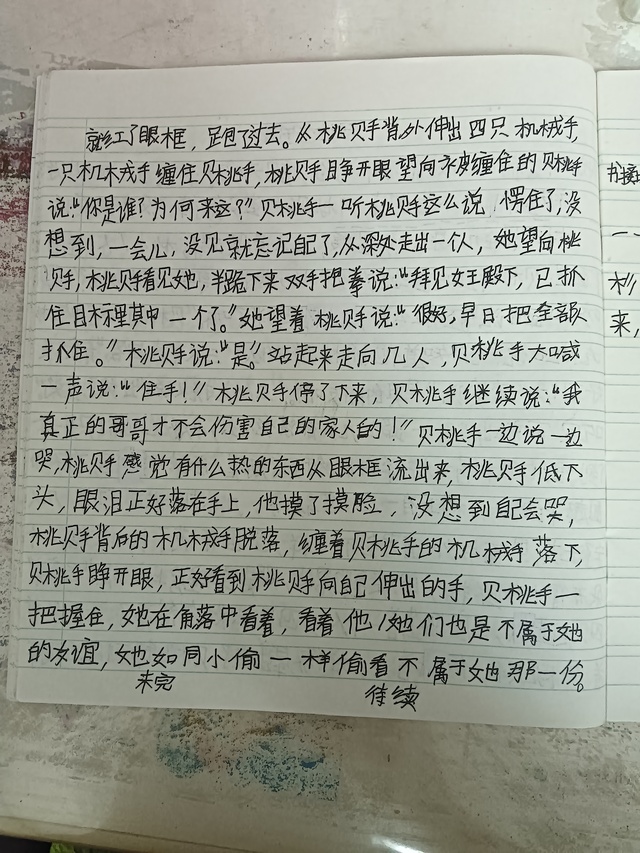 就红了眼框，跑了过去。从桃贝手背外伸出四只机械手，
一只机械手缠住贝桃手，桃贝手睁开眼望向被缠住的贝桃手
说："你是谁？为何来这？"贝桃手一听桃贝手这么说，愣住了，没
想到，一会儿，没见就忘记自己了，从深处走出一个人，她望向桃
贝手，桃贝手看见她，半跪下来双手抱拳说："拜见女王殿下，已抓
住目标里其中一个了。"她望着桃贝手说："很好，早日把全部
抓住。"桃贝手说："是"。站起来走向几人，贝桃手大喊
一声说："住手！"桃贝手停了下来，贝桃手继续说："我
真正的哥哥才不会伤害自己的家人的！"贝桃手一边说一边
哭，桃贝手感觉有什么热的东西从眼框流出来，桃贝手低下
头，眼泪正好落在手上，他摸了摸脸，没想到自己会哭，
桃贝手背后的机械手脱落，缠着贝桃手的机械手落下，
贝桃手睁开眼，正好看到桃贝手向自己伸出的手，贝桃手一
把握住，她在角落中看着，看着他/她们也是不属于她
的友谊，她如同小偷一样偷看不属于她那一份。
未完 待续
来，